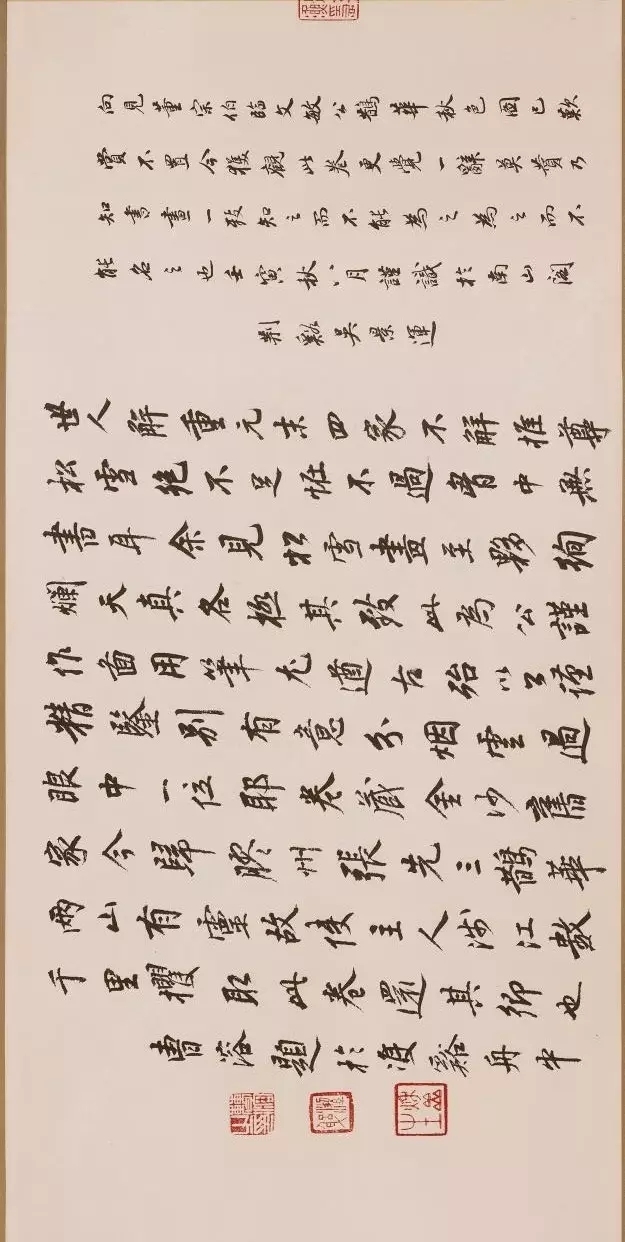 向見董宗伯臨文敏公鵲華秋色圖已歎
賞不置今獲觀此卷更覺一辭莫贊乃
知書畫一致知之而不能為之為之而不
能名之也壬寅秋八月謹識於南山閣
荆谿吳景運
世人解重元末四家不解推尊
松雪絕不足怪不過胷中無
書耳余見松雪畫至夥絢
爛天真各極其致此為公謹
作圖用筆尤遒古殆以公謹
精鑒別有意分烟雲過
眼中一位耶卷藏金沙舊
家今歸膠州張先三鵲華
兩山有靈故使主人涉江數
千里攫取此卷還其鄉也
曹溶題於谿舟中